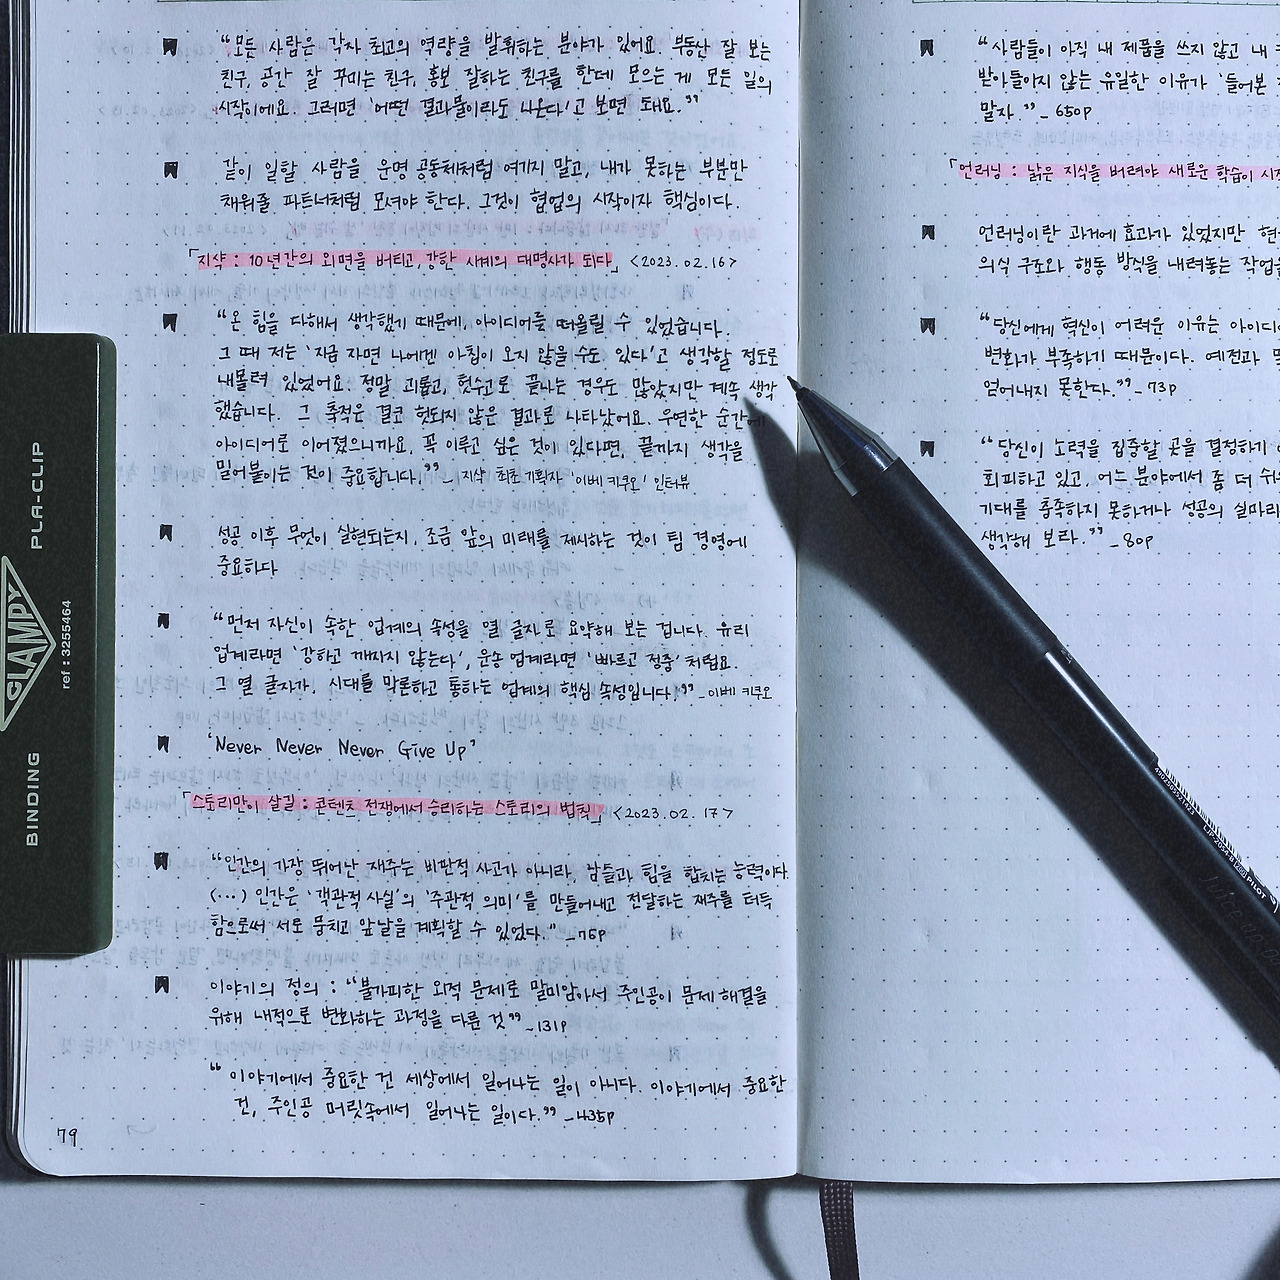 "모든 사람은 각자 최고의 역량을 발휘하는 분야가 있어요. 부동산 잘 보는
친구, 공간 잘 꾸미는 친구, 홍보 잘하는 친구를 한데 모으는 게 모든 일의
시작이에요. 그러면 '어떤 결과물이라도 나온다'고 보면 돼요."
같이 일할 사람을 운명 공동체처럼 여기지 말고, 내가 못하는 부분만
채워줄 파트너처럼 모셔야 한다. 그것이 협업의 시작이자 핵심이다.
「지샥 : 10년간의 외면을 버티고, 강한 시계의 대명사가 되다」 <2023.02.16>
"온 힘을 다해서 생각했기 때문에, 아이디어를 떠올릴 수 있었습니다.
그 때 저는 '지금 자면 나에겐 아침이 오지 않을 수도 있다'고 생각할 정도로
내몰려 있었어요. 정말 괴롭고, 헛수고로 끝나는 경우도 많았지만 계속 생각
했습니다. 그 축적은 결코 헛되지 않은 결과로 나타났어요. 우연한 순간에
아이디어로 이어졌으니까요. 꼭 이루고 싶은 것이 있다면, 끝까지 생각을
밀어붙이는 것이 중요합니다." - 지샥 최초 기획자 '이베 키쿠오' 인터뷰
성공 이후 무엇이 실현되는지, 조금 앞의 미래를 제시하는 것이 팀 경영에
중요하다
"먼저 자신이 속한 업계의 속성을 열 글자로 요약해 보는 겁니다. 유리
업계라면 '강하고 깨지지 않는다', 운송 업계라면 '빠르고 정중'처럼요.
그 열 글자가, 시대를 막론하고 통하는 업계의 핵심 속성입니다." - 이베 키쿠오
'Never Never Never Give Up'
「스토리만이 살길 : 콘텐츠 전쟁에서 승리하는 스토리의 법칙」 <2023.02.17>
"인간의 가장 뛰어난 재주는 비판적 사고가 아니라, 남들과 힘을 합치는 능력이다.
(...) 인간은 '객관적 사실'의 '주관적 의미'를 만들어내고 전달하는 재주를 터득
함으로써 서로 뭉치고 앞날을 계획할 수 있었다." - 76p
이야기의 정의 : "불가피한 외적 문제로 말미암아서 주인공이 문제 해결을
위해 내적으로 변화하는 과정을 다룬 것" - 131p
"이야기에서 중요한 건 세상에서 일어나는 일이 아니다. 이야기에서 중요한
건, 주인공 머릿속에서 일어나는 일이다." - 435p
79
"사람들이 아직 내 제품을 쓰지 않고 내
받아들이지 않는 유일한 이유가 '들어본
말자." - 650p
「언러닝 : 낡은 지식을 버려야 새로운 학습이
언러닝이란 과거에 효과가 있었지만
의식 구조와 행동 방식을 내려놓는 작업
"당신에게 혁신이 어려운 이유는
변화가 부족하기 때문이다. 예전과
얻어내지 못한다." - 73p
"당신이 노력을 집중할 곳을 결정하기
회피하고 있고, 어느 분야에서 좀 더
기대를 충족하지 못하거나 성공의
생각해 보라." - 80p
PLA-CLIP
CLAMPY
BINDING
ref : 3255464
PILOT